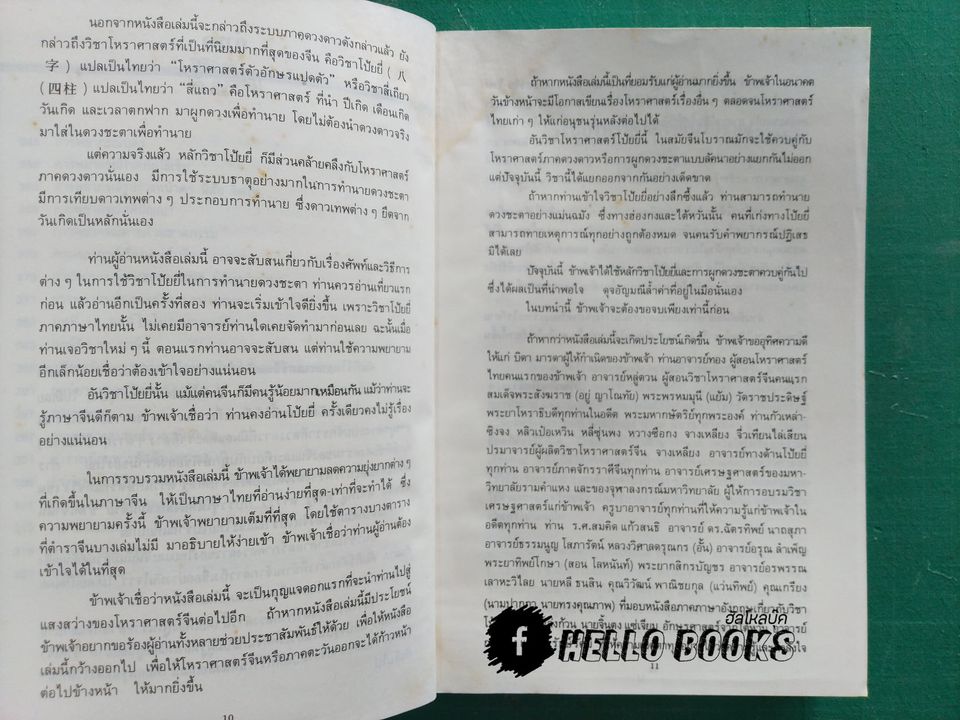 นอกจากหนังสือเล่มนี้จะกล่าวถึงระบบภาคดวงดาวดังกล่าวแล้ว ยัง
กล่าวถึงวิชาโหราศาสตร์ที่เป็นที่นิยมมากที่สุดของจีน คือวิชาโป้ยยี่ ( 八
字 ) แปลเป็นไทยว่า “โหราศาสตร์ตัวอักษรแปดตัว” หรือวิชาสี่เถียว
( 四柱 ) แปลเป็นไทยว่า “สี่แถว” คือโหราศาสตร์ ที่นำ ปีเกิด เดือนเกิด
วันเกิด และเวลาตกฟาก มาผูกดวงเพื่อทำนาย โดยไม่ต้องนำดวงดาวจริง
มาใส่ในดวงชะตาเพื่อทำนาย
แต่ความจริงแล้ว หลักวิชาโป้ยยี่ ก็มีส่วนคล้ายคลึงกับโหราศาสตร์
ภาคดวงดาวนั่นเอง มีการใช้ระบบธาตุอย่างมากในการทำนายดวงชะตา
มีการเทียบดาวเทพต่าง ๆ ประกอบการทำนาย ซึ่งดาวเทพต่าง ๆ ยึดจาก
วันเกิดเป็นหลักนั่นเอง
ท่านผู้อ่านหนังสือเล่มนี้ อาจจะสับสนเกี่ยวกับเรื่องศัพท์และวิธีการ
ต่าง ๆ ในการใช้วิชาโป้ยยี่ในการทำนายดวงชะตา ท่านควรอ่านเที่ยวแรก
ก่อน แล้วอ่านอีกเป็นครั้งที่สอง ท่านจะเริ่มเข้าใจดียิ่งขึ้น เพราะวิชาโป้ยยี่
ภาคภาษาไทยนั้น ไม่เคยมีอาจารย์ท่านใดเคยจัดทำมาก่อนเลย ฉะนั้นเมื่อ
ท่านเจอวิชาใหม่ ๆ นี้ ตอนแรกท่านอาจจะสับสน แต่ท่านใช้ความพยายาม
อีกเล็กน้อยเชื่อว่าต้องเข้าใจอย่างแน่นอน
อันวิชาโป้ยยี่นั้น แม้แต่คนจีนก็มีคนรู้น้อยมากเหมือนกัน แม้ว่าท่านจะ
รู้ภาษาจีนดีก็ตาม ข้าพเจ้าเชื่อว่า ท่านคงอ่านโป้ยยี่ ครั้งเดียวคงไม่รู้เรื่อง
อย่างแน่นอน
ในการรวบรวมหนังสือเล่มนี้ ข้าพเจ้าได้พยายามลดความยุ่งยากต่าง ๆ
ที่เกิดขึ้นในภาษาจีน ให้เป็นภาษาไทยที่อ่านง่ายที่สุด-เท่าที่จะทำได้ ซึ่ง
ความพยายามครั้งนี้ ข้าพเจ้าพยายามเต็มที่ที่สุด โดยใช้ตารางบางตาราง
ที่ตำราจีนบางเล่มไม่มี มาอธิบายให้ง่ายเข้า ข้าพเจ้าเชื่อว่าท่านผู้อ่านต้อง
เข้าใจได้ในที่สุด
ข้าพเจ้าเชื่อว่าหนังสือเล่มนี้ จะเป็นกุญแจดอกแรกที่จะนำท่านไปสู่
แสงสว่างของโหราศาสตร์จีนต่อไปอีก ถ้าหากหนังสือเล่มนี้มีประโยชน์
ข้าพเจ้าอยากขอร้องผู้อ่านทั้งหลายช่วยประชาสัมพันธ์ให้ด้วย เพื่อให้หนังสือ
เล่มนี้กว้างออกไป เพื่อให้โหราศาสตร์จีนหรือภาคตะวันออกจะได้ก้าวหน้า
ต่อไปข้างหน้า ให้มากยิ่งขึ้น
10
ถ้าหากหนังสือเล่มนี้เป็นที่ยอมรับแก่ผู้อ่านมากยิ่งขึ้น ข้าพเจ้าในอนาคต
วันข้างหน้าจะมีโอกาสเขียนเรื่องโหราศาสตร์เรื่องอื่น ๆ ตลอดจนโหราศาสตร์
ไทยเก่า ๆ ให้แก่อนุชนรุ่นหลังต่อไปได้
อันวิชาโหราศาสตร์โป้ยยี่นี้ ในสมัยจีนโบราณมักจะใช้ควบคู่กับ
โหราศาสตร์ภาคดวงดาวหรือการผูกดวงชะตาแบบลัคนาอย่างแยกกันไม่ออก
แต่ปัจจุบันนี้ วิชานี้ได้แยกออกจากกันอย่างเด็ดขาด
ถ้าหากท่านเข้าใจวิชาโป้ยยี่อย่างลึกซึ้งแล้ว ท่านสามารถทำนาย
ดวงชะตาอย่างแม่นฉมัง ซึ่งทางฮ่องกงและไต้หวันนั้น คนที่เก่งทางโป้ยยี่
สามารถทายเหตุการณ์ทุกอย่างถูกต้องหมด จนคนรับคำพยากรณ์ปฏิเสธ
มิได้เลย
ปัจจุบันนี้ ข้าพเจ้าได้ใช้หลักวิชาโป้ยยี่และการผูกดวงชะตาควบคู่กันไป
ซึ่งได้ผลเป็นที่น่าพอใจ ดุจอัญมณีล้ำค่าที่อยู่ในมือนั่นเอง
ในบทนำนี้ ข้าพเจ้าจะต้องขอจบเพียงเท่านี้ก่อน
ถ้าหากว่าหนังสือเล่มนี้จะเกิดประโยชน์เกิดขึ้น ข้าพเจ้าขออุทิศความดี
ให้แก่ บิดา มารดาผู้ให้กำเนิดของข้าพเจ้า ท่านอาจารย์ทอง ผู้สอนโหราศาสตร์
ไทยคนแรกของข้าพเจ้า อาจารย์หลู่ตวน ผู้สอนวิชาโหราศาสตร์จีนคนแรก
สมเด็จพระสังฆราช (อยู่ ญาโณทัย) พระพรหมมุนี (แย้ม) วัดราชประดิษฐ์
พระยาโหราธิบดีทุกท่านในอดีต พระมหากษัตริย์ทุกพระองค์ ท่านกัวเหล่า-
ซิงจง หลิวเป๋อเหวิน หลี่ซุ่นพง หวางซือกง จางเหลียง จิ่วเทียนไล่เสียน
ปรมาจารย์ผู้ผลิตวิชาโหราศาสตร์จีน จางเหลียง อาจารย์ทางด้านโป้ยยี่
ทุกท่าน อาจารย์ภาคจักรราศีจีนทุกท่าน อาจารย์เศรษฐศาสตร์ของมหา-
วิทยาลัยรามคำแหง และของจุฬาลงกรณ์มหาวิทยาลัย ผู้ให้การอบรมวิชา
เศรษฐศาสตร์แก่ข้าพเจ้า ครูบาอาจารย์ทุกท่านที่ให้ความรู้แก่ข้าพเจ้าใน
อดีตทุกท่าน ท่าน ร.ศ.สมคิด แก้วสนธิ อาจารย์ ดร.ฉัตรทิพย์ นาถสุภา
อาจารย์ธรรมนูญ โสภารัตน์ หลวงวิศาลดรุณกร (อั้น) อาจารย์อรุณ ลำเพ็ญ
พระยาทิพย์โกษา (สอน โลหนันท์) พระยากสิกรบัญชร อาจารย์อรพรรณ
เลาหะวิไลย นายหลี ธนสิน คุณวิวัฒน์ พาณิชยกุล (แว่นทิพย์) คุณเกรียง
(นามปากกา นายทรงคุณภาพ) ที่มอบหนังสือภาคภาษาอังกฤษเกี่ยวกับวิชา
นายจินตง แซ่เจียน
11
ฮัลโหลบุ๊ค
f HELLO BOOKS